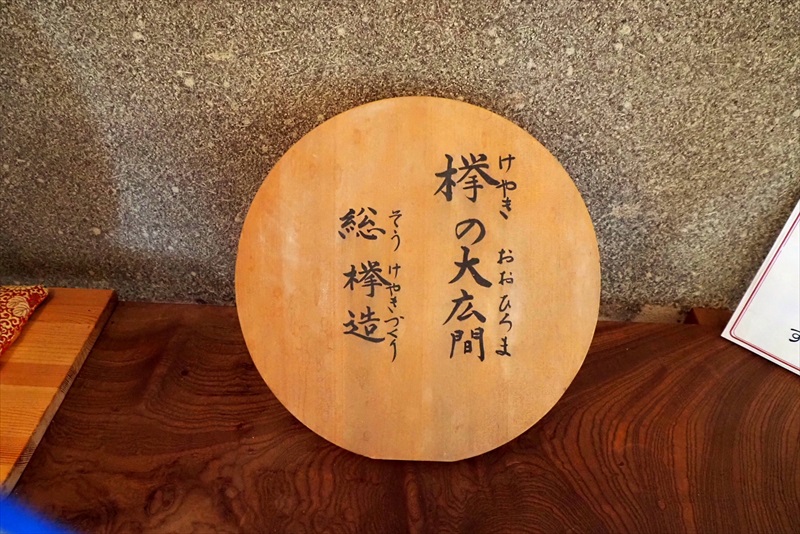 欅の大広間
けやき おおひろま
総欅造
そうけやきづくり
す